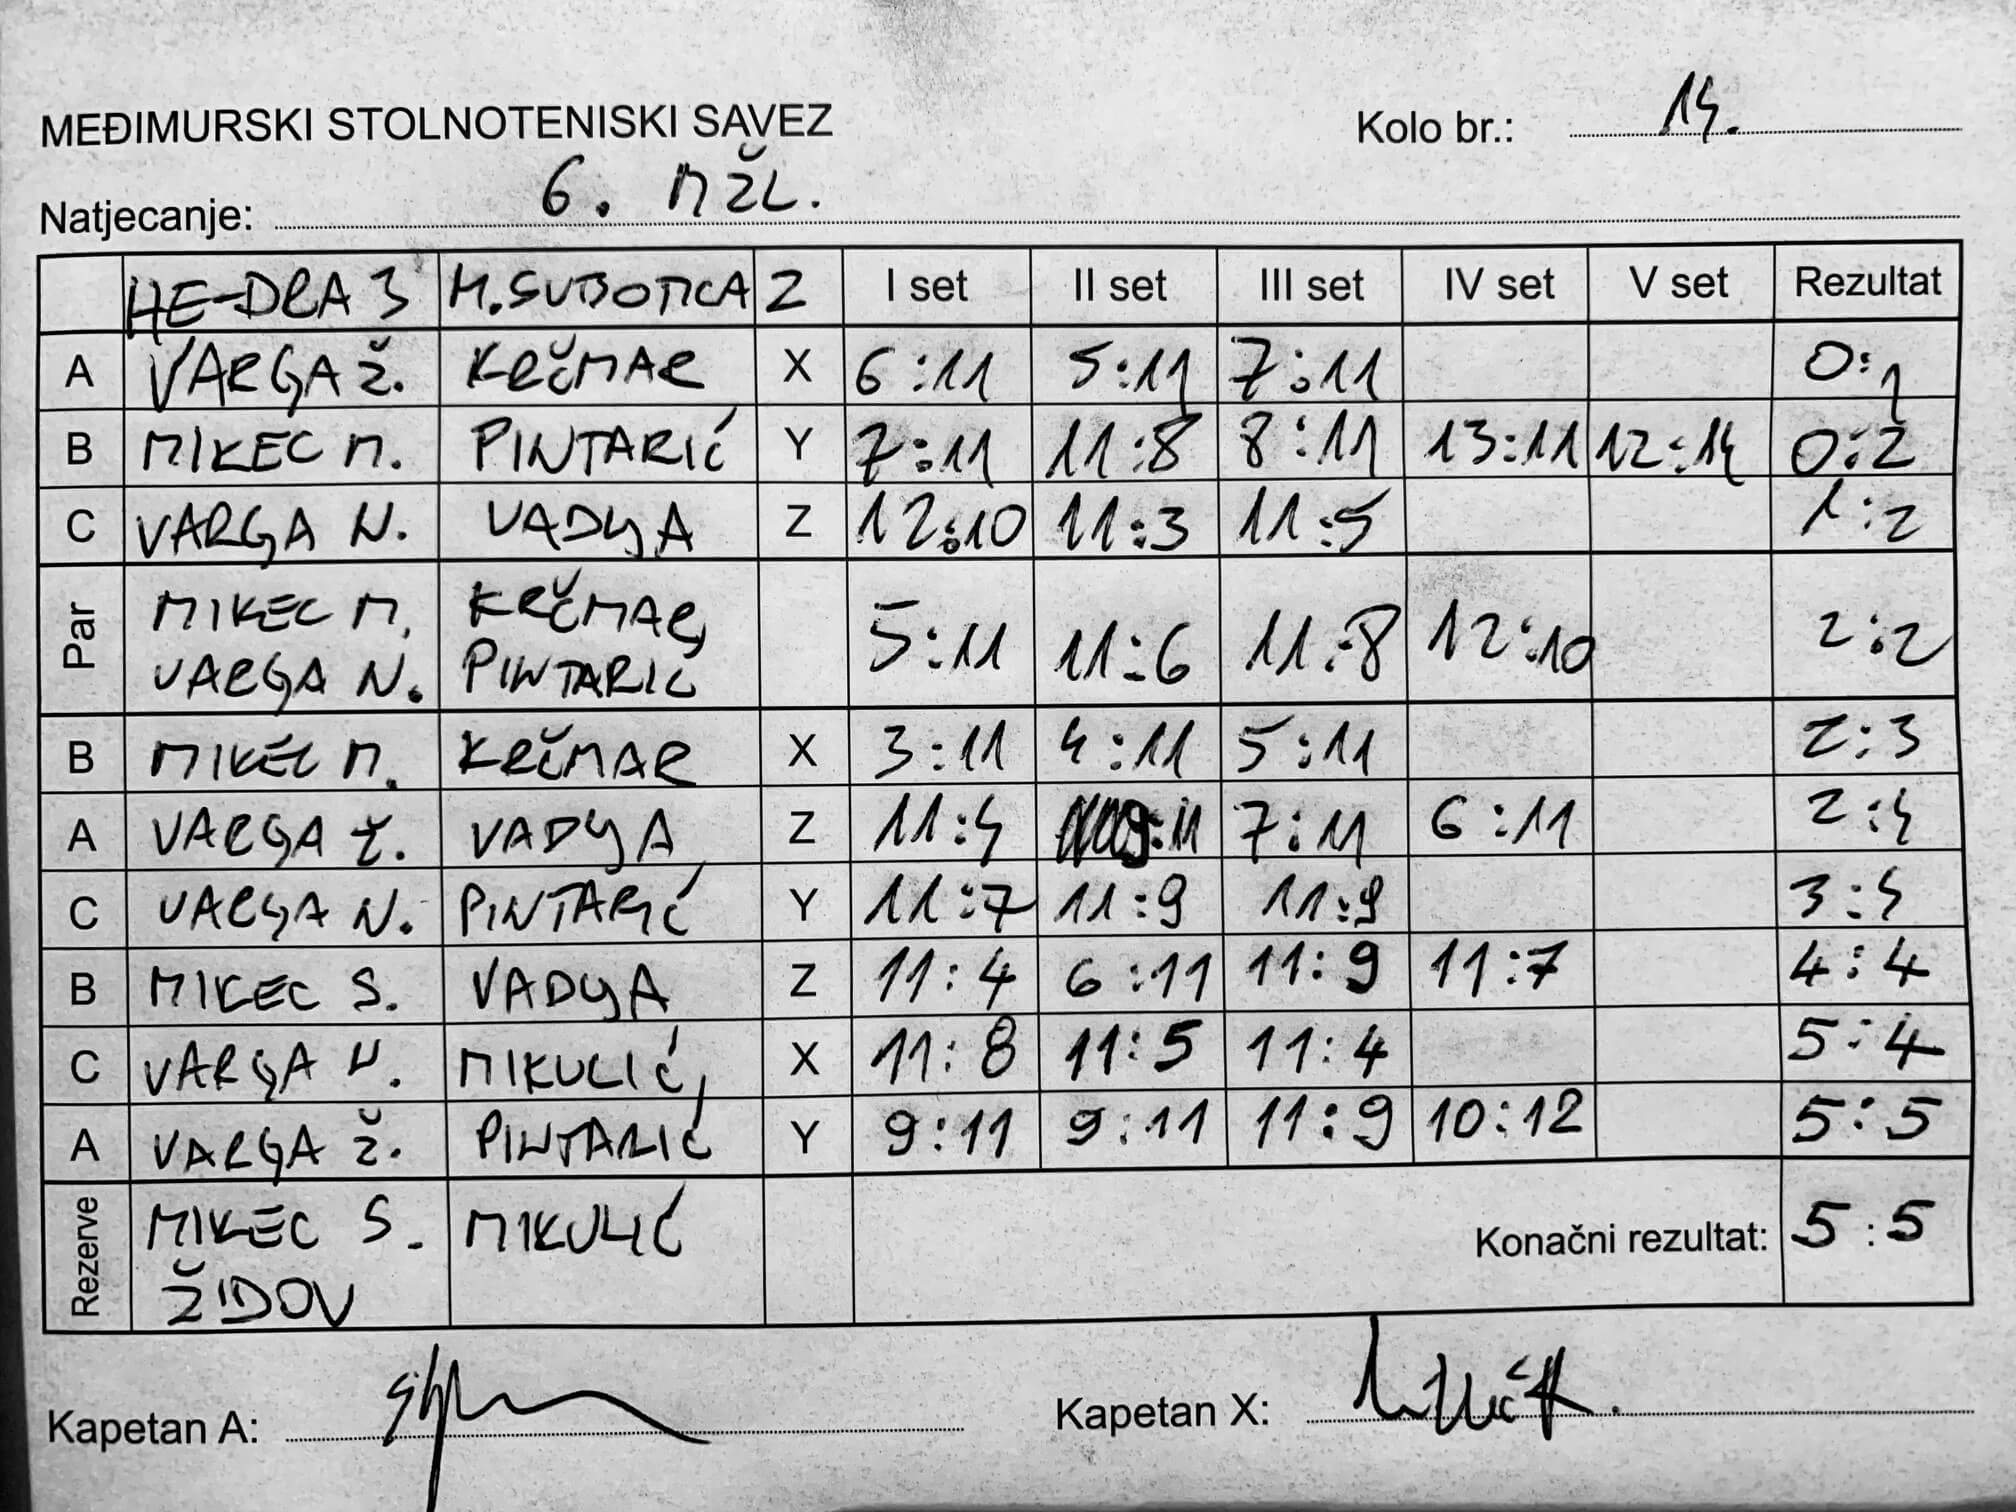 MEĐIMURSKI STOLNOTENISKI SAVEZ Kolo br.: 14.
Natjecanje: 6. MŽL.
HE-DRA 3 M.SUBOTICA 2 I set II set III set IV set V set Rezultat
A VARGA Ž. KRČMAR X 6:11 5:11 7:11 0:1
B MIKEC M. PINTARIĆ Y 7:11 11:8 8:11 13:11 12:14 0:2
C VARGA N. VADLJA Z 12:10 11:3 11:5 1:2
Par
MIKEC M. KRČMAR,
VARGA N. PINTARIĆ 5:11 11:6 11:8 12:10 2:2
B MIKEC M. KRČMAR X 3:11 4:11 5:11 2:3
A VARGA Ž. VADLJA Z 11:4 9:11 7:11 6:11 2:4
C VARGA N. PINTARIĆ Y 11:7 11:9 11:9 3:4
B MIKEC S. VADLJA Z 11:4 6:11 11:9 11:7 4:4
C VARGA N. MIKULIĆ X 11:8 11:5 11:4 5:4
A VARGA Ž. PINTARIĆ Y 9:11 9:11 11:9 10:12 5:5
Rezerve
MIKEC S. MIKULIĆ Konačni rezultat: 5:5
ŽIDOV
Kapetan A: Kapetan X: